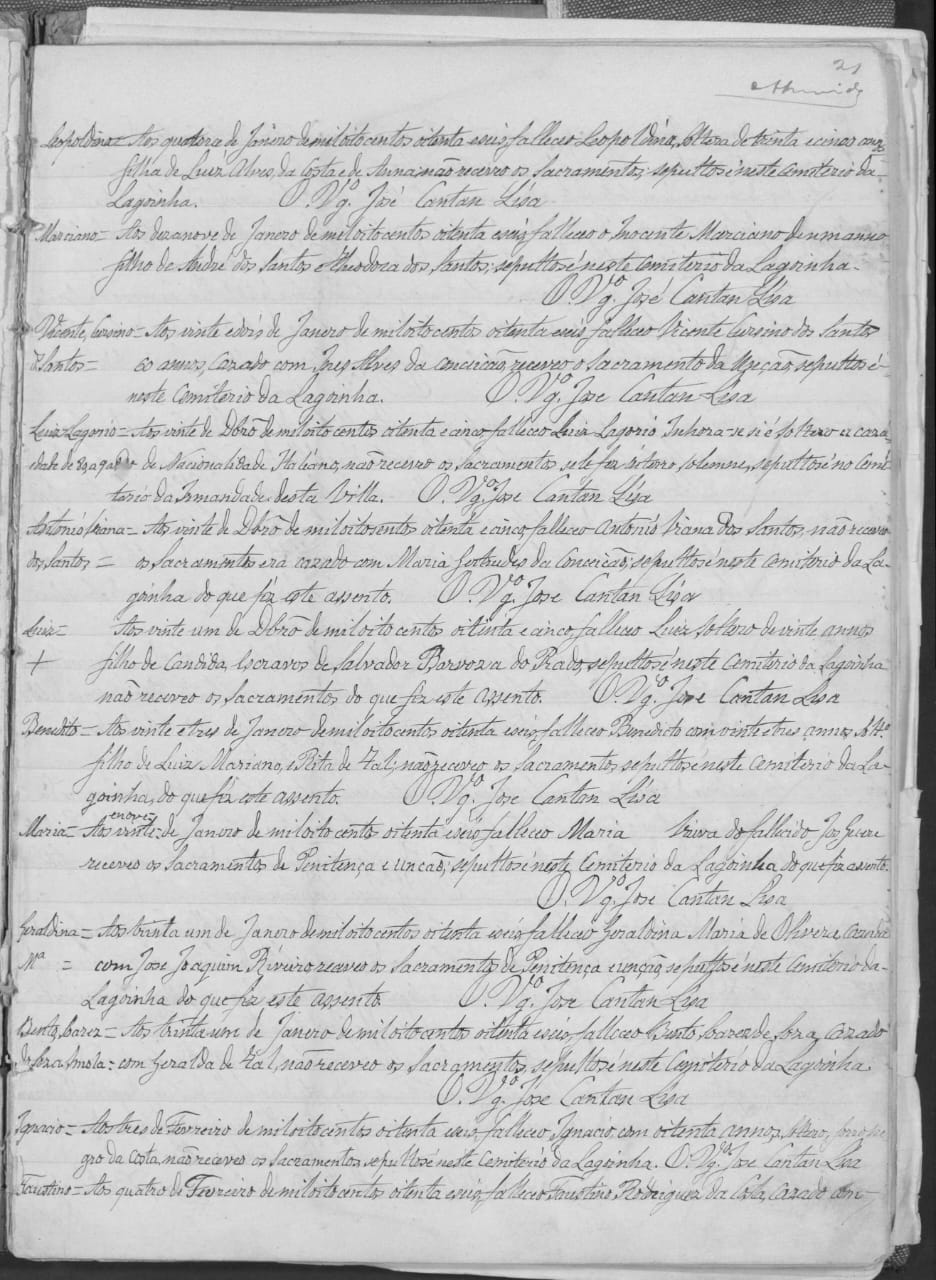 21
Leopoldina = Aos quatorze de Janero de mil oito centos oitenta e seis falleceo Leopoldina, soltera de trinta e cinco annos
filha de Luiz Alves da Costa e de Anna não receveo os Sacramentos, sepultose neste Cemiterio da
Lagoinha. O Vgº. José Cantan Lisa
Marciano = Aos dezanove de Janero de mil oito centos oitenta e seis falleceo o Inocente Marciano de um anno
filho de André dos Santos e Theodora dos Santos; sepultose neste Cemiterio da Lagoinha.
O Vgº. José Cantan Lisa
Vicente Cursino = Aos vinte e dois de Janero de mil oito centos oitenta e seis falleceo Vicente Cursino dos Santos
dSantos = 60 annos, cazado com Ines Alves da Conceicão, receveo o Sacramento da Unção, sepultose
neste Cemiterio da Lagoinha. O Vgº. Jose Cantan Lisa
Luiz Lagorio = Aos vinte de Dbrõ de mil oito centos oitenta e cinco falleceo Luiz Lagorio Inhora-se si é soltero u caza
do de Nacionalidade Italiano, não receveo os Sacramentos se le fez solemne, sepultose no Cemi
terio da Irmandade desta Villa. O Vgº. Jose Cantan Lisa
Antonio Viana = Aos vinte de Dbrõ de mil oitosentos oitenta e cinco falleceo Antonio Viana dos Santos, não receveo
dos Santos = os Sacramentos era cazado com Maria Gertrudes da Conceicão, sepultose neste cemiterio da La-
goinha do que fiz este assento. O Vgº. Jose Cantan Lisa
Luiz = Aos vinte um de Dbrõ de mil oito centos oitenta e cinco falleceo Luiz soltero de vinte annos
+ filho de Candida, Escravos de Salvador Barvoza do Prado, sepultose neste Cemiterio da Lagoinha
não receveo os Sacramentos do que fiz este assento. O Vgº. Jose Cantan Lisa
Benedito = Aos vinte e tres de Janero de mil oito centos oitenta e seis falleceo Benedicto com vinte e tres annos soltº
filho de Luiz Mariano, e Rita de Tal; não receveo os Sacramentos sepultose neste Cemiterio da La-
goinha, do que fiz este assento. O Vgº. Jose Cantan Lisa
Maria = Aos vinte e nove de Janero de mil oito cento oitenta e seis falleceo Maria Viuva do fallecido
receveo os Sacramentos de Penitença e uncão; sepultose neste Cemiterio da Lagoinha do que fiz assento.
O Vgº. Jose Cantan Lisa
Geraldina = Aos trinta um de Janero de mil oito centos oitenta e seis falleceo Geraldina Maria de Olivera, cazada
Mª = com Jose Joaquim Riveiro receveo os Sacramentos de Penitença e unção, sepultose neste Cemiterio da
Lagoinha do que fiz este assento. O Vgº. Jose Cantan Lisa
Bento Soarez = Aos trinta um de Janero de mil oito centos oitenta e seis falleceo Bento Soarez de Soza, cazado
de Soza = com Geralda de Tal, não receveo os Sacramentos, sepultose neste Cemiterio da Lagoinha
O Vgº. Jose Cantan Lisa
Ignacio = Aos tres de Fevreiro de mil oito centos oitenta e seis, falleceo Ignacio, com oitenta annos, soltero,
gro da costa, não receveo os Sacramentos sepultose neste Cemiterio da Lagoinha. O Vgº. Jose Cantan Lisa
Faustino = Aos quatro de Fevreiro de mil oito centos oitenta e seis, falleceo Faustino Rodriguez da Costa, cazado com